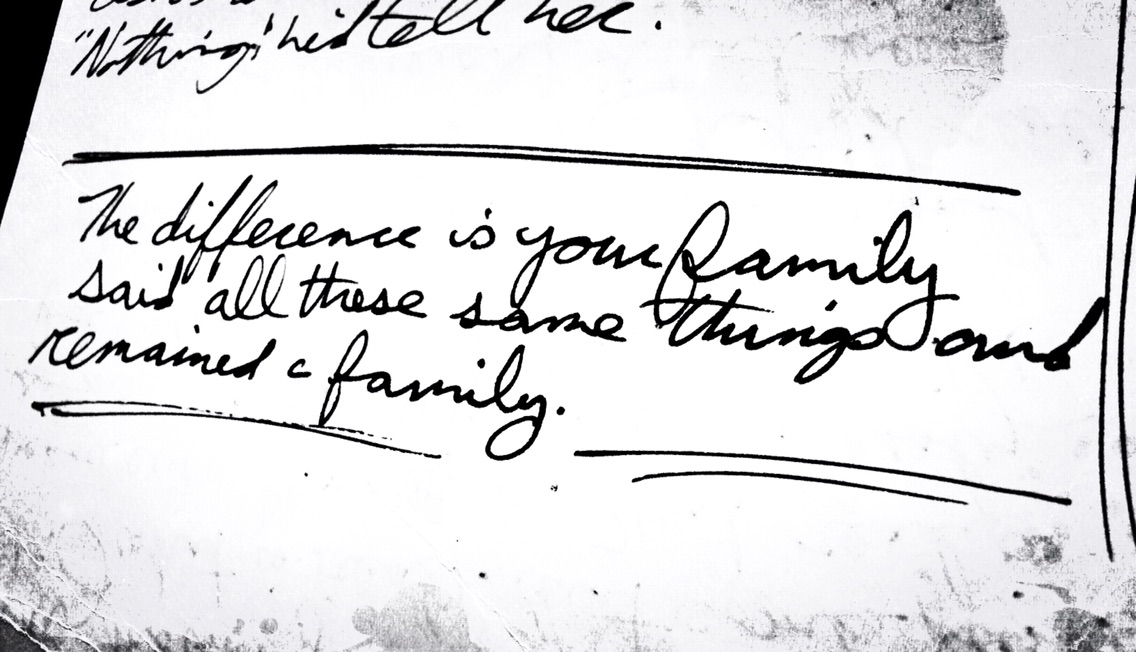 "Nothing," he'd tell her.
The difference is your family
said all these same things and
remained a family.